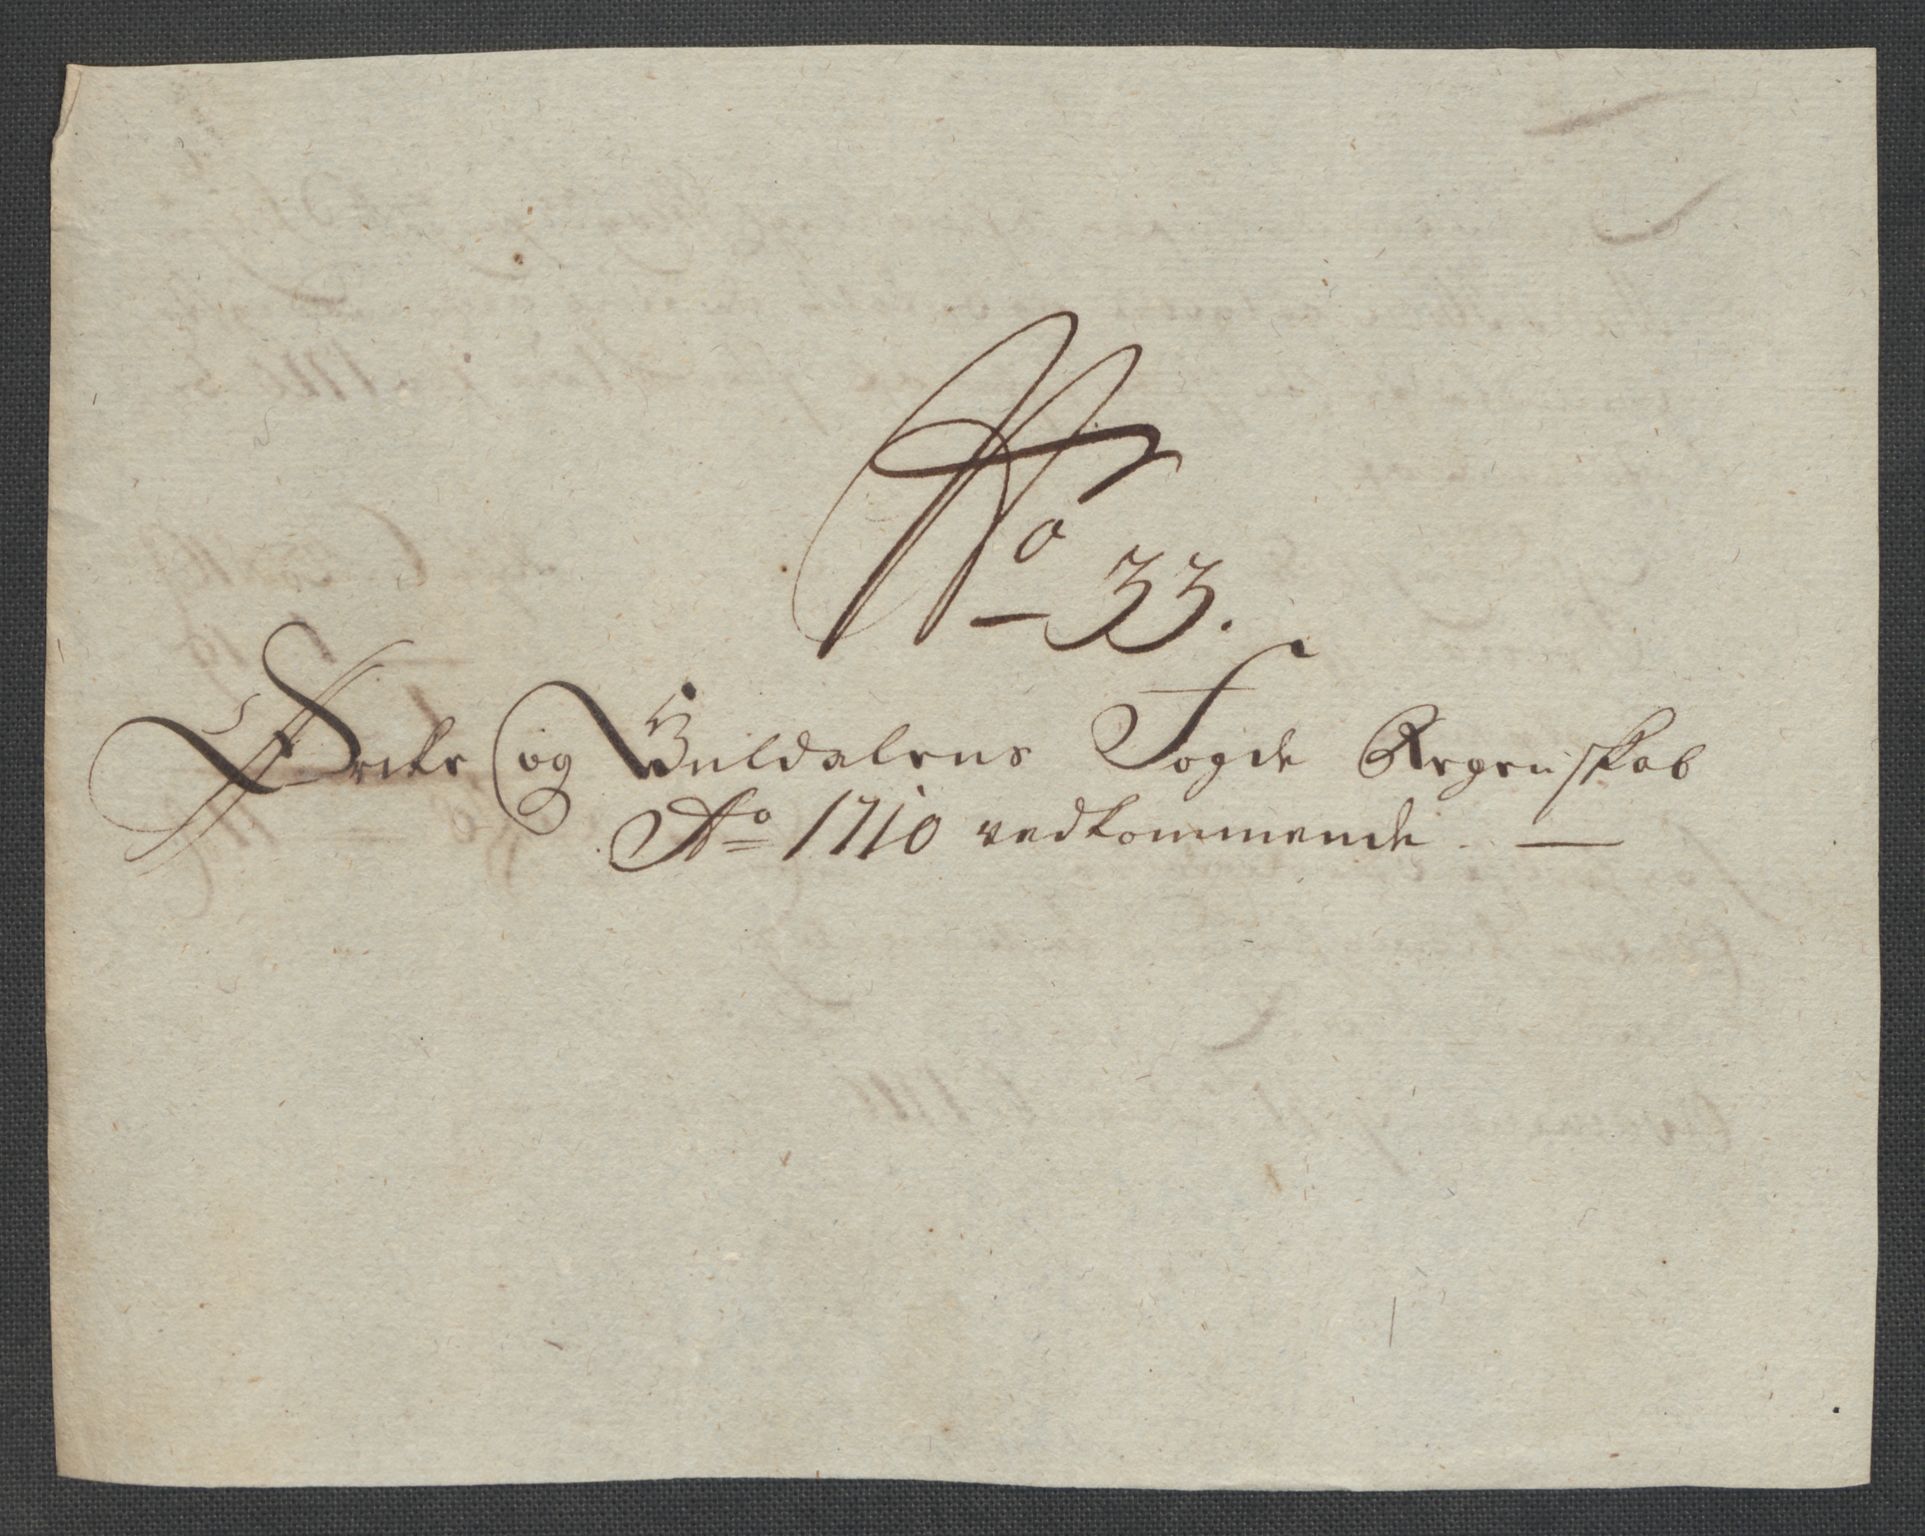 No 33.
Ørcke og Guldalens Fogde Regenskab
Ao 1710 vedkommende. —